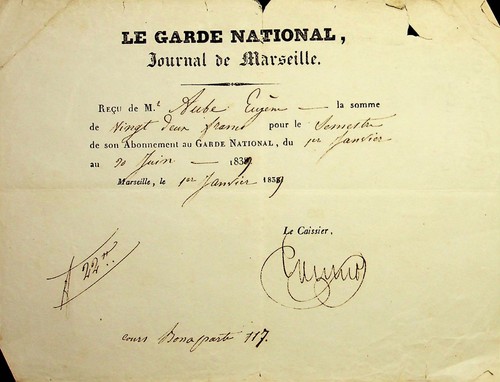 LE GARDE NATIONAL,
Journal de Marseille.
Reçu de M.r Aube Eugène la somme
de vingt deux francs pour le Semestre
de son Abonnement au GARDE NATIONAL, du 1er Janvier
au 30 Juin 1839
Marseille, le 1er Janvier 1839
Le Caissier,
22
cours Bonaparte 117.